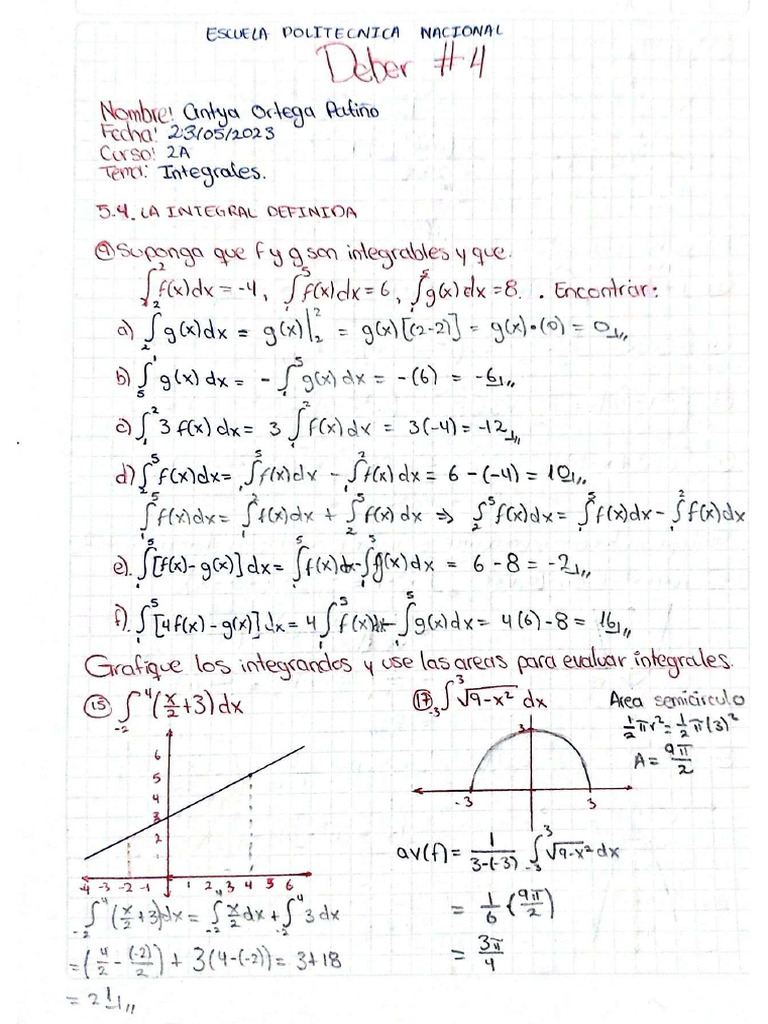 ESCUELA POLITECNICA NACIONAL
Deber #4
Nombre: Cintya Ortega Patiño
Fecha: 23/05/2023
Curso: 2A
Tema: Integrales.
5.4. LA INTEGRAL DEFINIDA
⑨ Suponga que f y g son integrables y que.
∫₁² f(x)dx = -4, ∫₁⁵ f(x)dx = 6, ∫₁⁵ g(x)dx = 8. . Encontrar:
a) ∫₂² g(x)dx = g(x)|₂² = g(x)[(2-2)] = g(x)·(0) = 0,,
b) ∫₅¹ g(x)dx = -∫₁⁵ g(x)dx = -(6) = -6,,
c) ∫₁² 3f(x)dx = 3∫₁² f(x)dx = 3(-4) = -12,,
d) ∫₂⁵ f(x)dx = ∫₁⁵ f(x)dx - ∫₁² f(x)dx = 6-(-4) = 10,,
∫₁⁵ f(x)dx = ∫₁² f(x)dx + ∫₂⁵ f(x)dx ⇒ ∫₂⁵ f(x)dx = ∫₁⁵ f(x)dx - ∫₁² f(x)dx
e). ∫₁⁵ [f(x)-g(x)]dx = ∫₁⁵ f(x)dx - ∫₁⁵ g(x)dx = 6-8 = -2,,
f). ∫₁⁵ [4f(x)-g(x)]dx = 4∫₁⁵ f(x)dx - ∫₁⁵ g(x)dx = 4(6)-8 = 16,,
Grafique los integrandos y use las areas para evaluar integrales.
⑮ ∫₋₂⁴ (x/2+3)dx
6
5
4
3
2
-4 -3 -2 -1 1 2 3 4 5 6
∫₋₂⁴ (x/2+3)dx = ∫₋₂⁴ x/2 dx + ∫₋₂⁴ 3dx
= (4/2 - (-2)/2) + 3(4-(-2)) = 3+18
= 21,,
⑰ ∫₋₃³ √(9-x²) dx
Area semicirculo
½πr² = ½π(3)²
A = 9π/2
3
-3 3
av(f) = 1/(3-(-3)) ∫₋₃³ √(9-x²) dx
= 1/6 (9π/2)
= 3π/4